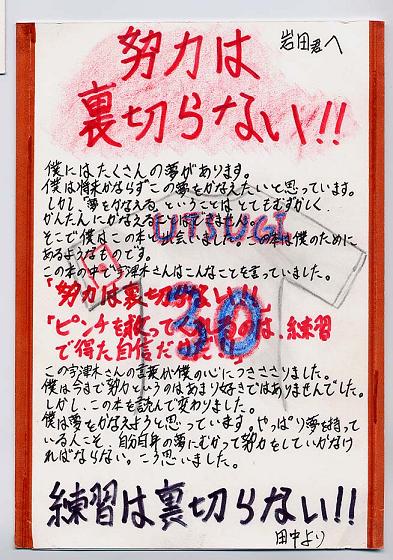 岩田君へ
努力は
裏切らない!!
僕にはたくさんの夢があります。
僕は将来かならずこの夢をかなえたいと思っています。
しかし、夢をかなえる、ということは、とてもむずかしく、
かんたんにかなえることはできません。
そこで僕はこの本と出会いました。この本は僕のために
あるようなものです。
この本の中で宇津木さんはこんなことを言っていました。
「努力は裏切らない!!」
「ピンチを救ってくれるのは、練習
で得た自信だ
UTSUGI
30
この宇津木さんの言葉が僕の心につきささりました。
僕は今まで努力というのはあまり好きではありませんでした。
しかし、この本を読んで変わりました。
僕は夢をかなえようと思っています。やっぱり夢を持って
いる人こそ、自分自身の夢にむかって努力をしていかなけ
ればならない。こう思いました。
練習は裏切らない!!
田中より